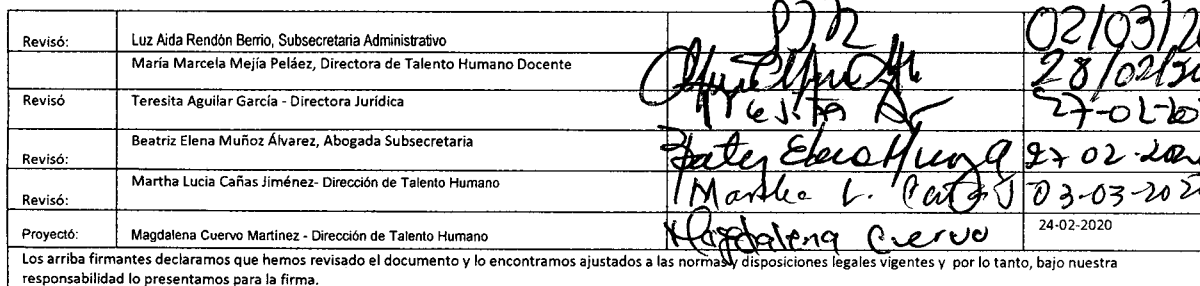 Revisó: Luz Aida Rendón Berrio, Subsecretaria Administrativo 02/03/20
María Marcela Mejía Peláez, Directora de Talento Humano Docente 28/02/20
Revisó Teresita Aguilar García - Directora Jurídica
Revisó: Beatriz Elena Muñoz Álvarez, Abogada Subsecretaria 27 02-202
Revisó: Martha Lucia Cañas Jiménez- Dirección de Talento Humano Martha L. 03-03-202
Proyectó: Magdalena Cuervo Martinez - Dirección de Talento Humano Magdalena Cuervo 24-02-2020
Los arriba firmantes declaramos que hemos revisado el documento y lo encontramos ajustados a las normas y disposiciones legales vigentes y por lo tanto, bajo nuestra
responsabilidad lo presentamos para la firma.